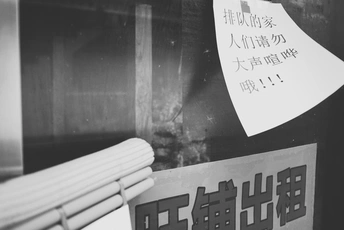 排队的家
人们请勿
大声喧哗
哦!!!
旺铺出租